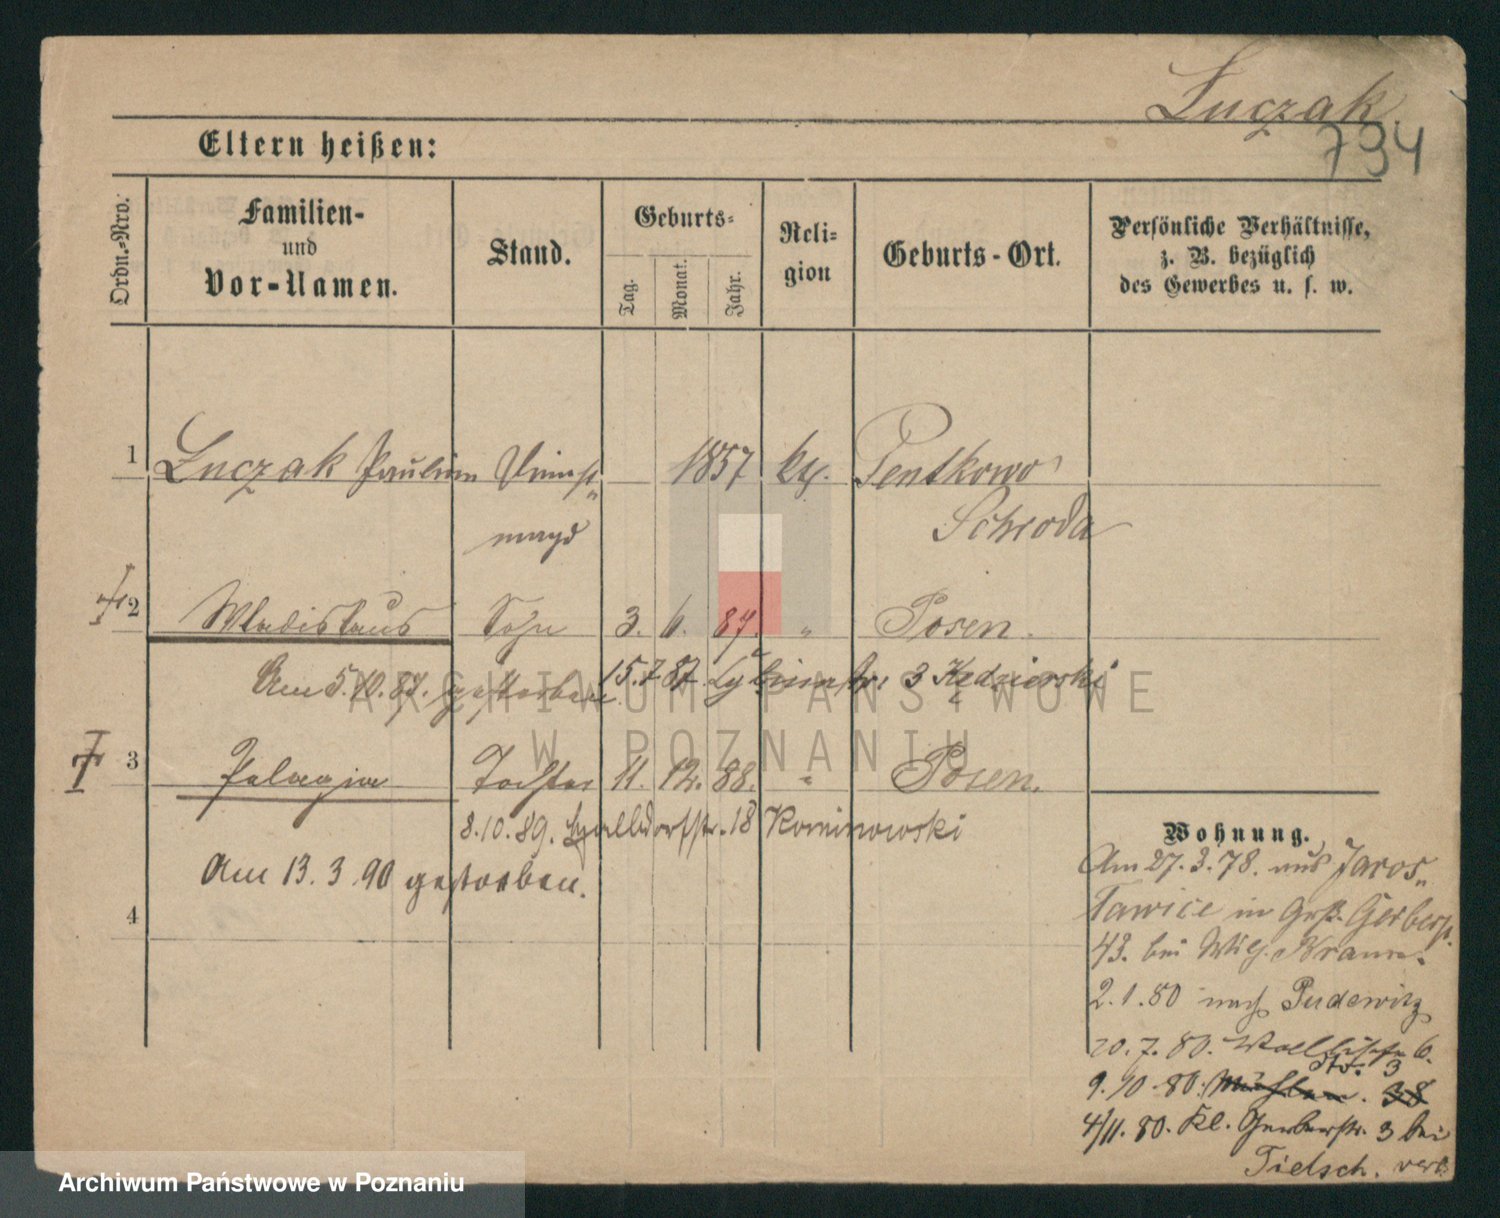 Luczak
794
Eltern heißen:
Ordn.-Nro.
Familien-
und
Vor-Namen.
Stand.
Geburts-
Tag.
Monat.
Jahr.
Reli-
gion
Geburts-Ort.
Persönliche Verhältnisse,
z. B. bezüglich
des Gewerbes u. s. w.
1 Luczak Paulina Dienst- 1857 kth. Pentkowo
magd Schroda
2 Wladislaus Sohn 3. 6. 87. " Posen.
Am 5.10.87. gestorben 15.7.87. 3 Kedzierski
3 Pelagia Tochter 11. 12. 88. " Posen.
8.10.89. 18 Kominowski
Am 13.3.90 gestorben.
4
Wohnung.
Am 27.3.78. aus Jaros-
lawice in Grß. Gerberst.
43. bei
2.1.80 nach Pudewitz
20.7.80. Wallischei 6.
Str. 3
9.10.80. Mühlen. 38
4/11.80. Kl. Gerberstr. 3 bei
Tielsch.
ARCHIWUM PAŃSTWOWE
W POZNANIU
Archiwum Państwowe w Poznaniu